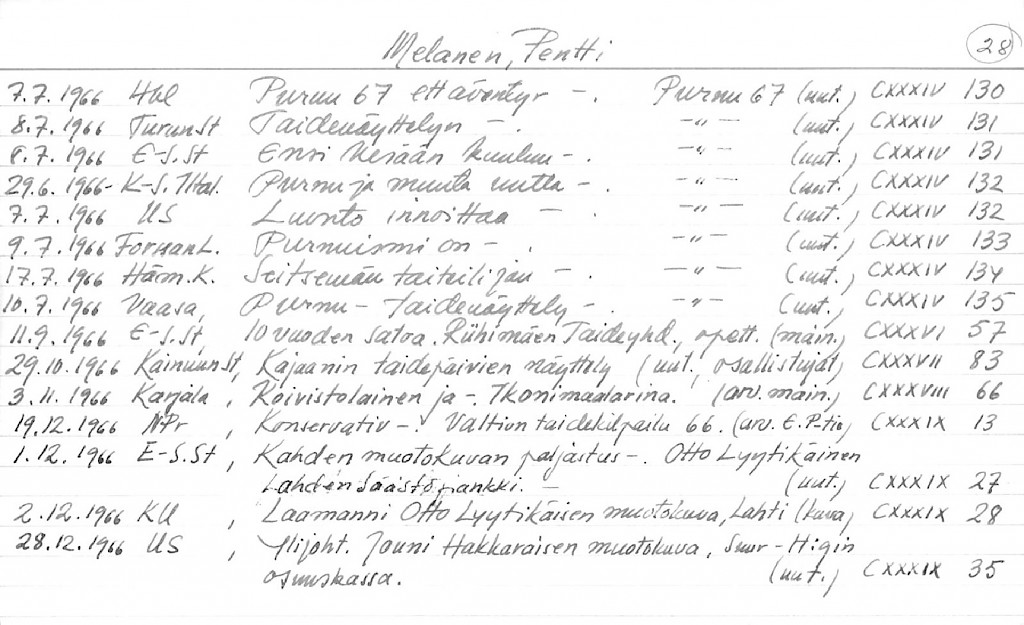 Melanen, Pentti 28
7.7.1966 Hbl Purnu 67 ett äventyr -. Purnu 67 (uut.) CXXXIV 130
8.7.1966 TurunSt Taidenäyttelyn -. -"- (uut.) CXXXIV 131
8.7.1966 E-S.St Ensi kesään kuuluu -. -"- (uut.) CXXXIV 131
29.6.1966- K-S.Iltal. Purnu ja muuta uutta -. -"- (uut.) CXXXIV 132
7.7.1966 US Luonto innoittaa -. -"- (uut.) CXXXIV 132
9.7.1966 ForssanL. Purnuismi on -. -"- (uut.) CXXXIV 133
17.7.1966 Häm.K. Seitsemän taiteilijan -. -"- (uut.) CXXXIV 134
10.7.1966 Vaasa, Purnu - Taidenäyttely -. -"- (uut.) CXXXIV 135
11.9.1966 E-S.St, 10 vuoden satoa. Riihimäen Taideyhd., opett. (main.) CXXXVI 57
29.10.1966 KainuunSt, Kajaanin taidepäivien näyttely (uut., osallistujat) CXXXVII 83
3.11.1966 Karjala, Koivistolainen ja -. Ikonimaalarina. (arv. main.) CXXXVIII 66
19.12.1966 NPr, Konservativ -. Valtion taidekilpailu 66. (arv. E.P-tio) CXXXIX 13
1.12.1966 E-S.St, Kahden muotokuvan paljastus -. Otto Lyytikäinen
Lahden Säästöpankki. - (uut.) CXXXIX 27
2.12.1966 KU, Laamanni Otto Lyytikäisen muotokuva, Lahti (kuva) CXXXIX 28
28.12.1966 US, Ylijoht. Jouni Hakkaraisen muotokuva, Suur-Higin
osuuskassa. (uut.) CXXXIX 35